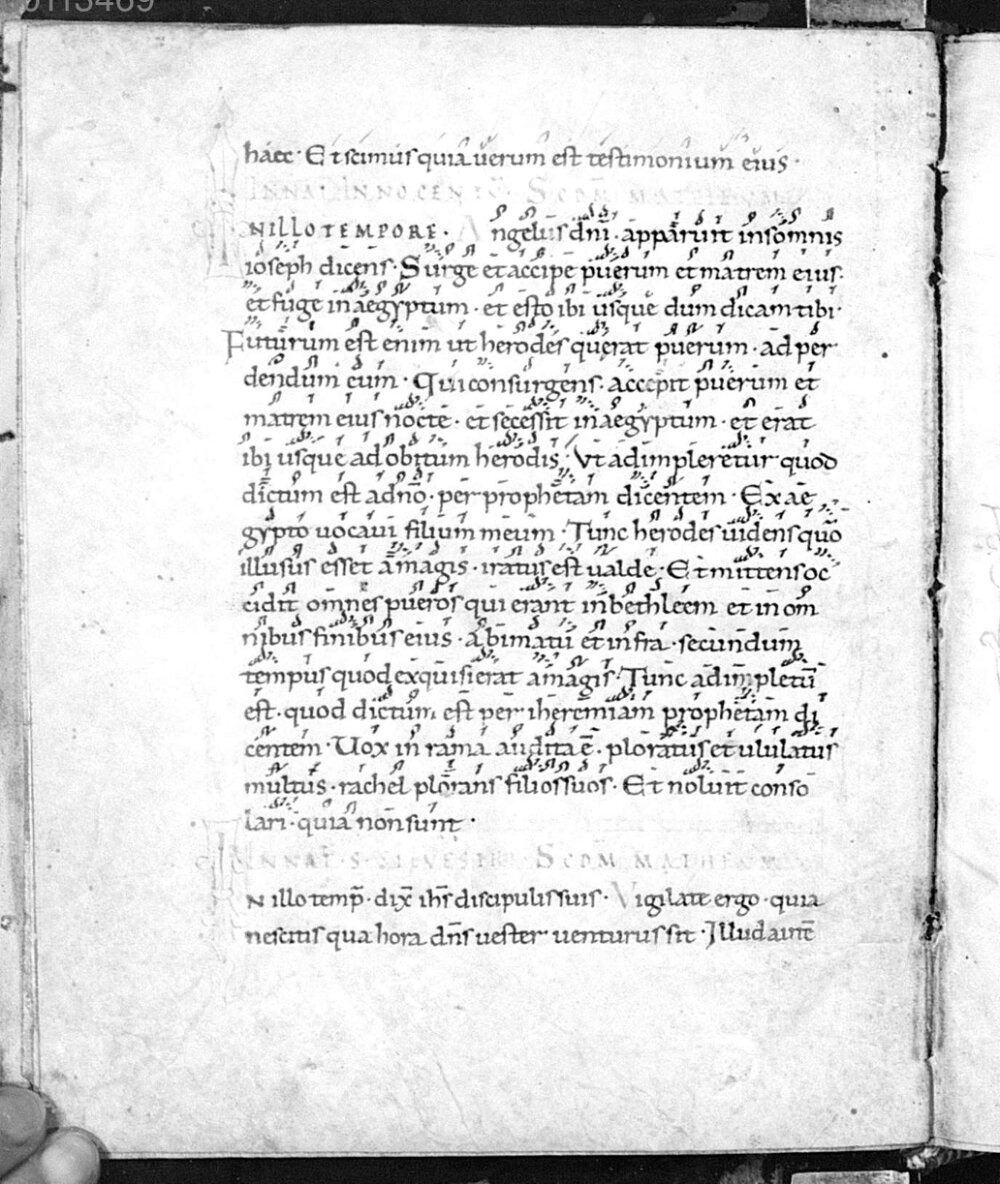 0113469
haec · Et scimus quia uerum est testimonium eius ·
IN NAT INNOCENTU · SCDM MATHEUM
IN ILLO TEMPORE · Angelus dni · apparuit insomnis
ioseph dicens · Surge et accipe puerum et matrem eius ·
et fuge in aegyptum · et esto ibi usque dum dicam tibi ·
Futurum est enim ut herodes querat puerum · ad per
dendum eum · Qui consurgens · accepit puerum et
matrem eius nocte · et secessit in aegyptum · et erat
ibi usque ad obitum herodis · Vt adimpleretur quod
dictum est a dno · per prophetam dicentem · Ex ae
gypto uocaui filium meum · Tunc herodes uidens quo
illusus esset a magis · iratus est ualde · Et mittens oc
cidit omnes pueros qui erant in bethleem et in om
nibus finibus eius · a bimatu et infra · secundum
tempus quod exquisierat a magis · Tunc adimpletu
est · quod dictum est per iheremiam prophetam di
centem · Uox in rama audita ē · ploratus et ululatus
multus · rachel plorans filios suos · Et noluit conso
lari · quia non sunt ·
IN NAT · S · SILVESTRI · SCDM MATHEUM
IN illo temp̄ · dix̄ ihs̄ discipulis suis · Vigilate ergo · quia
nescitis qua hora dn̄s uester uenturus sit · Illud autē